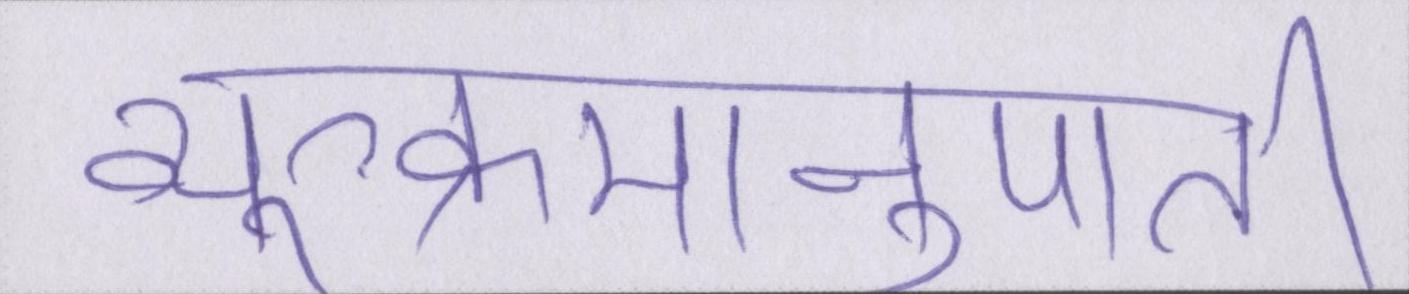 व्यूत्क्रमानुपाती